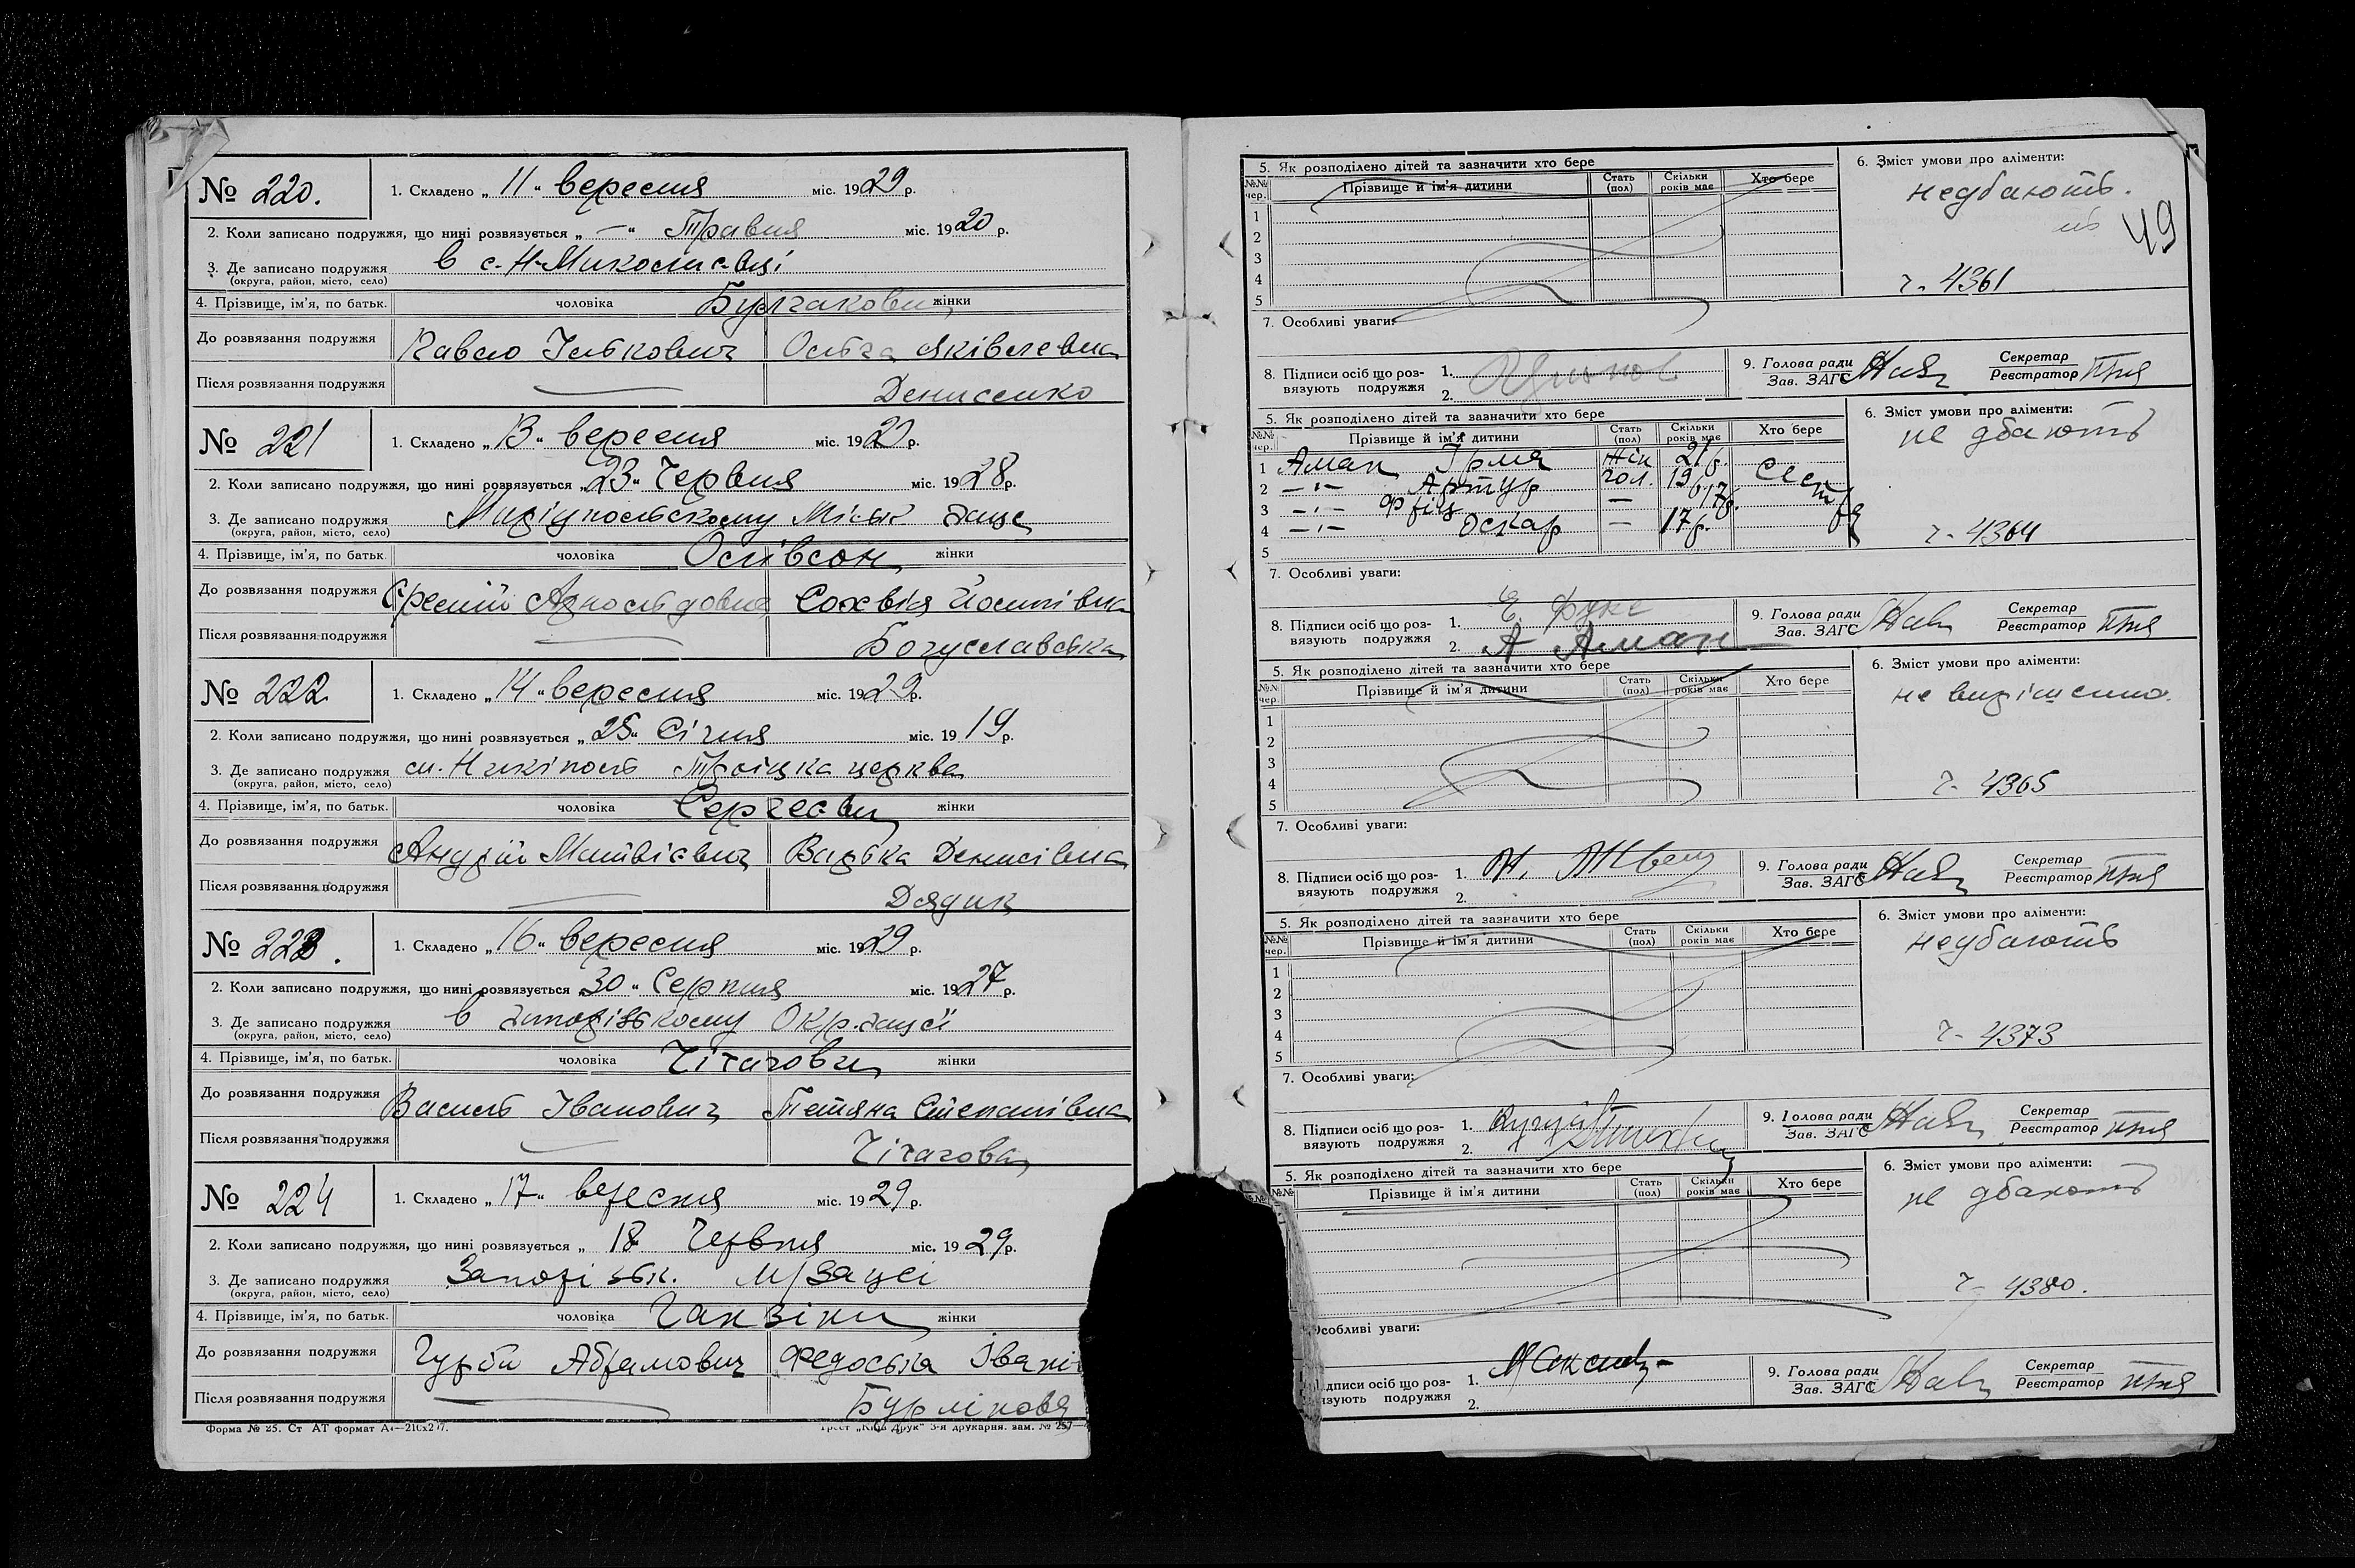 № 220. 1. Складено „11“ вересня міс. 1929 р.
2. Коли записано подружжя, що нині розвязується „—“ Травня міс. 1920 р.
3. Де записано подружжя в с. Н-Миколаєвці
(округа, район, місто, село)
4. Прізвище, ім'я, по батьк. чоловіка жінки
До розвязання подружжя Яківлевна
Після розвязання подружжя — Денисенко
№ 221 1. Складено „13“ вересня міс. 1929 р.
2. Коли записано подружжя, що нині розвязується „23“ Червня міс. 1928 р.
3. Де записано подружжя Маріупольському Міськ загсе
(округа, район, місто, село)
4. Прізвище, ім'я, по батьк. чоловіка жінки
До розвязання подружжя Йосипівна
Після розвязання подружжя — Богуславська
№ 222 1. Складено „14“ вересня міс. 1929 р.
2. Коли записано подружжя, що нині розвязується „25“ Січня міс. 1919 р.
3. Де записано подружжя м. Нікіполь Троіцка церква
(округа, район, місто, село)
4. Прізвище, ім'я, по батьк. чоловіка Сергєєви жінки
До розвязання подружжя Андрій Матвієвич Варька Денисівна
Після розвязання подружжя — Дядик
№ 223. 1. Складено „16“ вересня міс. 1929 р.
2. Коли записано подружжя, що нині розвязується „30“ Серпня міс. 1927 р.
3. Де записано подружжя в Запорізькому Окр. загсі
(округа, район, місто, село)
4. Прізвище, ім'я, по батьк. чоловіка Чігагови жінки
До розвязання подружжя Василь Іванович Тетяна Степанівна
Після розвязання подружжя — Чігагова
№ 224 1. Складено „17“ вересня міс. 1929 р.
2. Коли записано подружжя, що нині розвязується „18 Червня міс. 1929 р.
3. Де записано подружжя Запорізьк. м/Загсі
(округа, район, місто, село)
4. Прізвище, ім'я, по батьк. чоловіка Ганзіни жінки
До розвязання подружжя Абрамович Федосья Івані
Після розвязання подружжя — Бурлінова
Форма № 25. Ст АТ формат А4—210х297.
Трест „Київ Друк“ 3-я друкарня. зам. № 257—
5. Як розподілено дітей та зазначити хто бере 6. Зміст умови про аліменти:
№№ чер. Прізвище й ім'я дитини Стать (пол) Скільки років має Хто бере недбають.
1
2
49
3
4 ч. 4361
5
7. Особливі уваги:
8. Підписи осіб що розвязують подружжя 1. 9. Голова ради Зав. ЗАГС Секретар Реєстратор
2.
5. Як розподілено дітей та зазначити хто бере 6. Зміст умови про аліменти:
№№ чер. Прізвище й ім'я дитини Стать (пол) Скільки років має Хто бере не дбають
1 Аман Ірма жін 21 р.
2 —"— Артур чол. 19 р. Сестра
3 —"— Фріц — 17 р.
4 —"— Оскар — 17 р. ч. 4364
5
7. Особливі уваги:
8. Підписи осіб що розвязують подружжя 1. Е. Фукс 9. Голова ради Зав. ЗАГС Секретар Реєстратор
2. А Аман
5. Як розподілено дітей та зазначити хто бере 6. Зміст умови про аліменти:
№№ чер. Прізвище й ім'я дитини Стать (пол) Скільки років має Хто бере не вирішено.
1
2
3
4 ч. 4365
5
7. Особливі уваги:
8. Підписи осіб що розвязують подружжя 1. 9. Голова ради Зав. ЗАГС Секретар Реєстратор
2.
5. Як розподілено дітей та зазначити хто бере 6. Зміст умови про аліменти:
№№ чер. Прізвище й ім'я дитини Стать (пол) Скільки років має Хто бере недбають
1
2
3
4 ч. 4373
5
7. Особливі уваги:
8. Підписи осіб що розвязують подружжя 1. 9. Голова ради Зав. ЗАГС Секретар Реєстратор
2.
5. Як розподілено дітей та зазначити хто бере 6. Зміст умови про аліменти:
№№ Прізвище й ім'я дитини Стать (пол) Скільки років має Хто бере не дбають
ч. 4380.
Особливі уваги:
дписи осіб що розязують подружжя 1. 9. Голова ради Зав. ЗАГС Секретар Реєстратор
2.